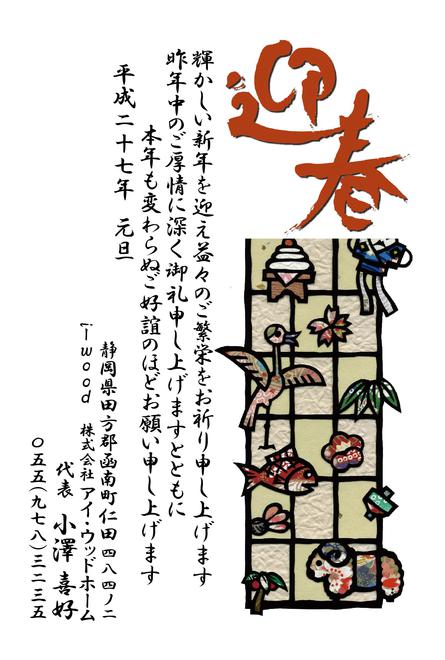 迎春
輝かしい新年を迎え益々のご繁栄をお祈り申し上げます
昨年中のご厚情に深く御礼申し上げますとともに
本年も変わらぬご好誼のほどお願い申し上げます
平成二十七年 元旦
静岡県田方郡函南町仁田四八四ノ二
i-wood 株式会社アイ・ウッドホーム
代表 小澤喜好
〇五五(九七八)三二三五